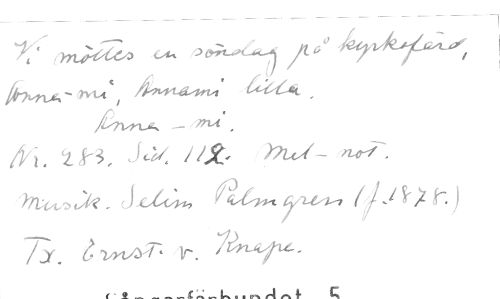 Vi möttes en söndag på kyrkofärd,
Anna-mi, Annami lilla.
Anna-mi.
Nr. 283. Sid. 112. Mel-not.
Musik. Selim Palmgren (f. 1878.)
Tx. Ernst v. Knape.
Sångarförbundet 5